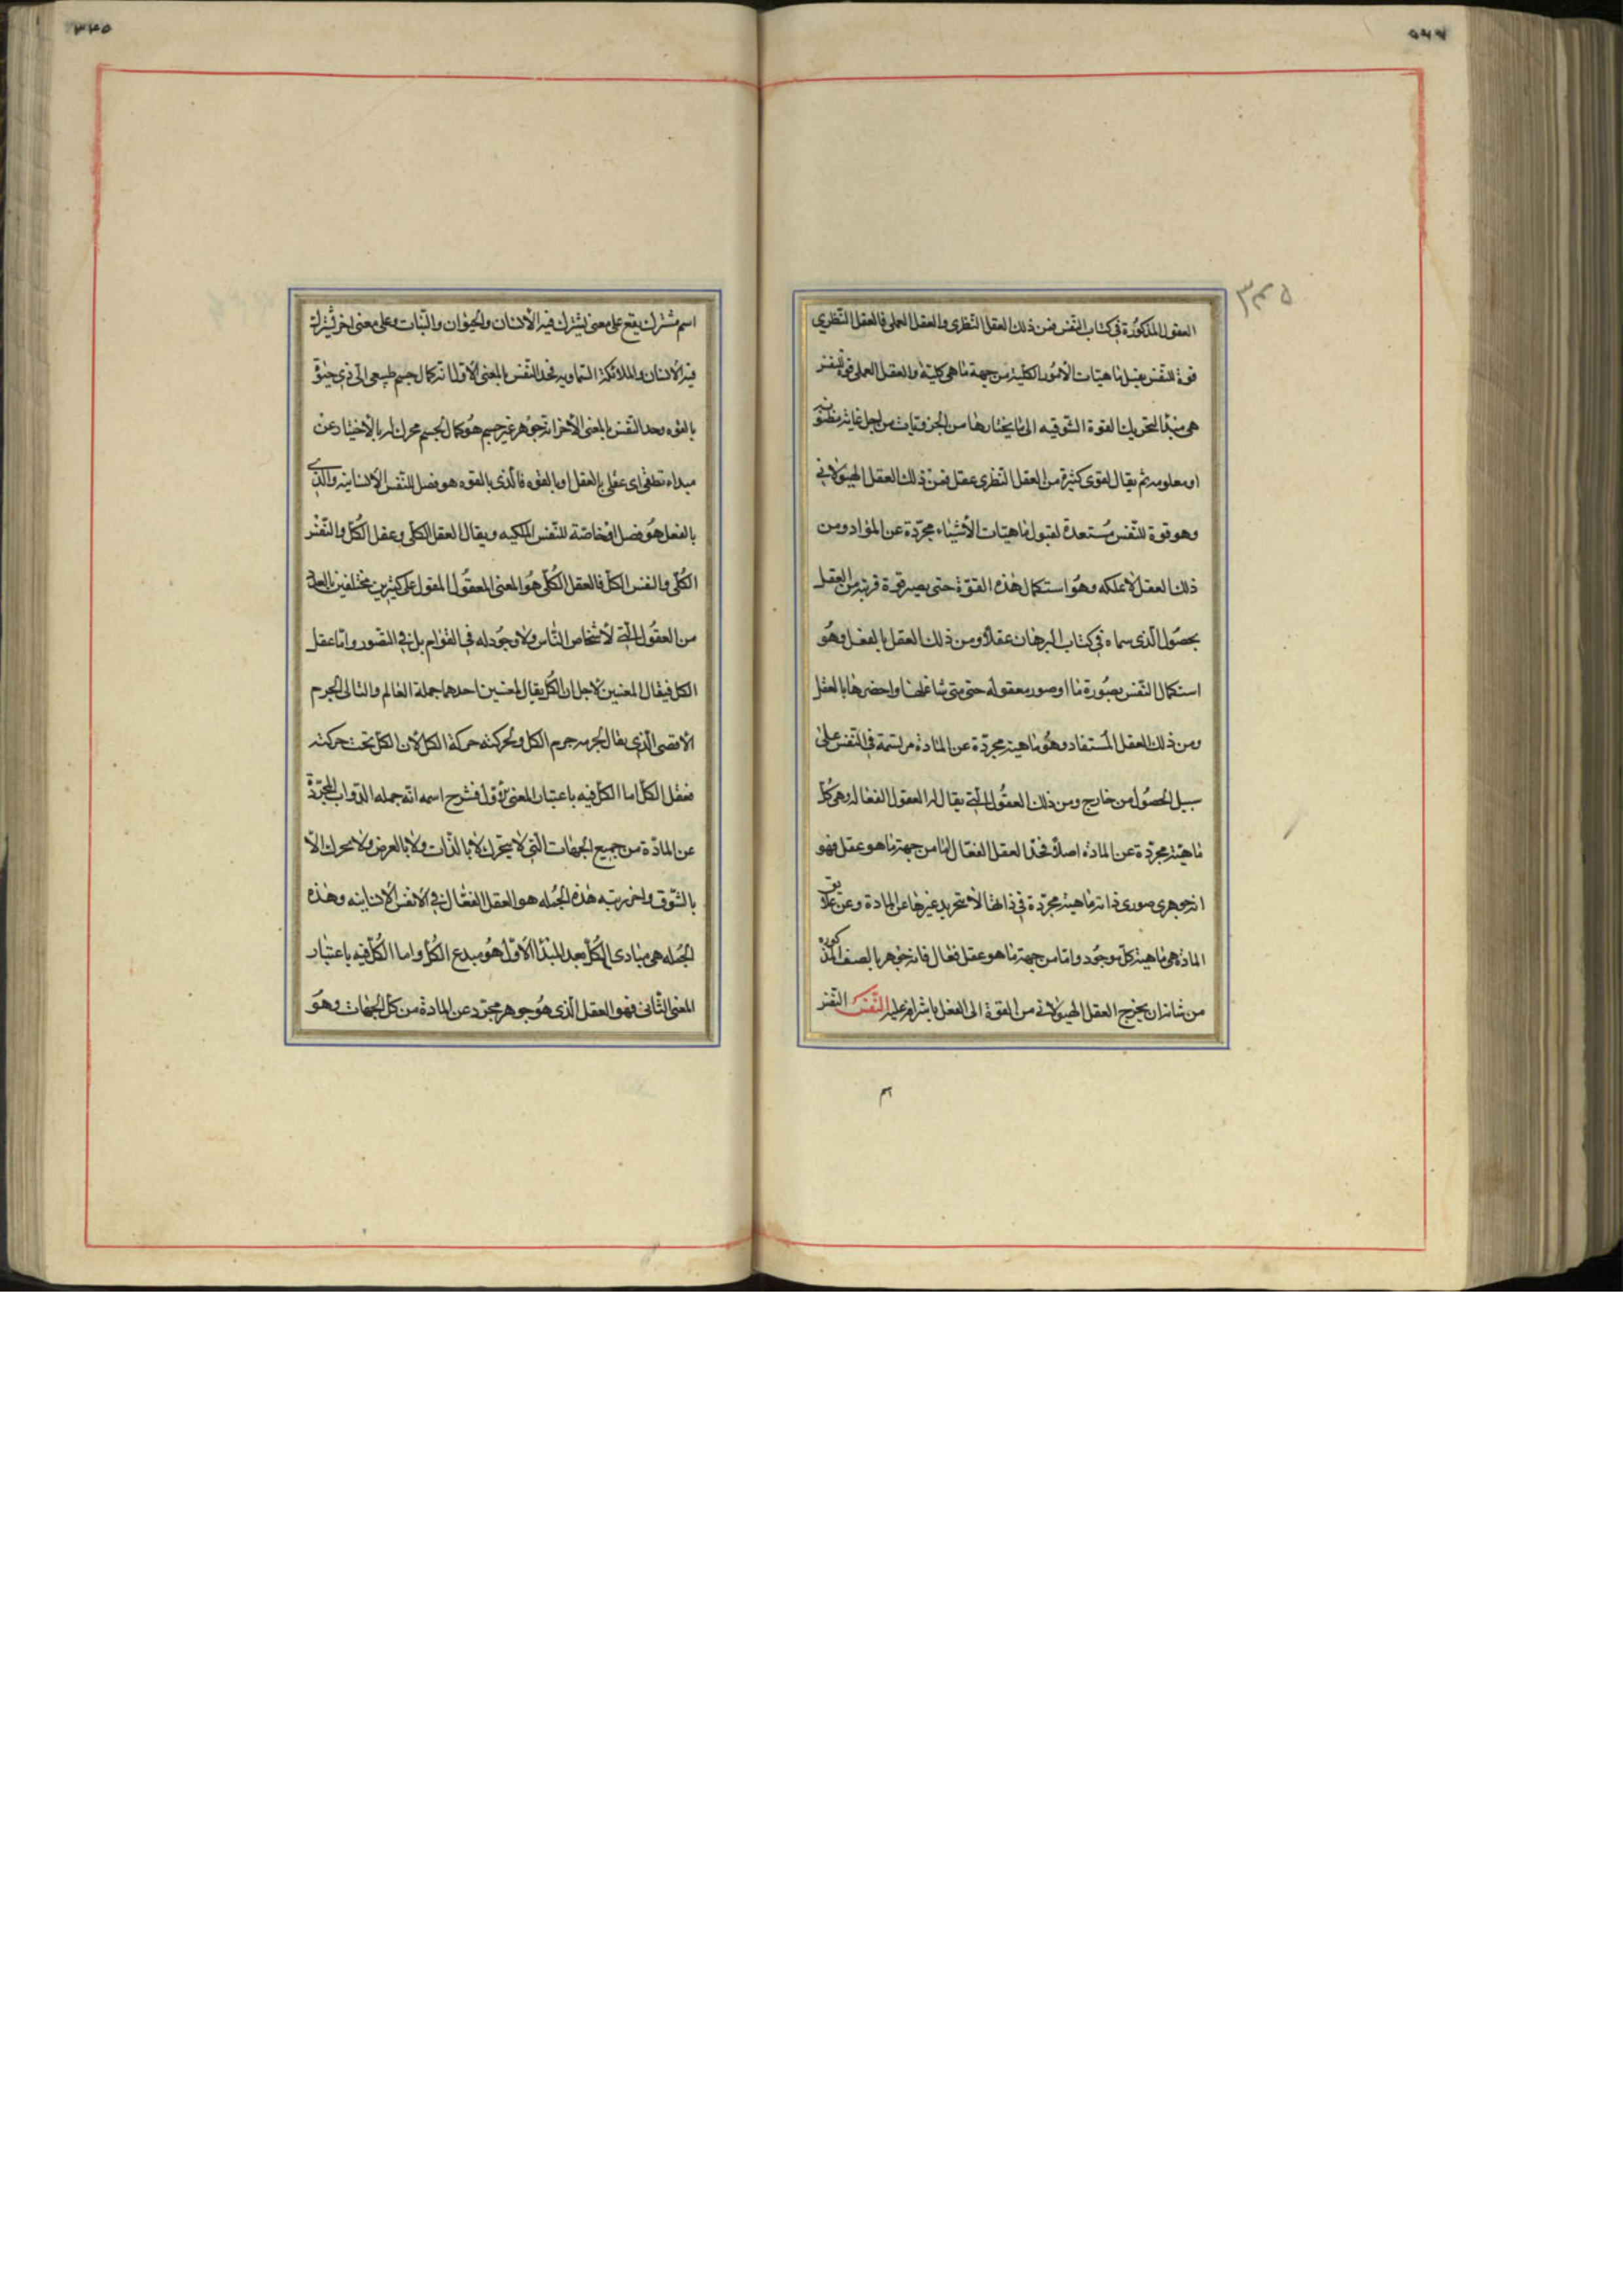 ٥٤٤
٣٤٥
العقول المذكورة في كتاب النفس فمن ذلك العقل النظرى والعقل العملى فالعقل النظرى
قوة للنفس يقبل ماهيات الأمور الكلية من جهة ما هى كلية والعقل العملى قوة للنفس
هى مبدأ لتحريك القوة الشوقيه الى ما يختارها من الجزويات من اجل غاية مظنونه
او معلومه ثم يقال لقوى كثيرة من العقل النظرى عقل فمن ذلك العقل الهيولانى
وهو قوة للنفس مستعدة لقبول ماهيات الأشياء مجردة عن المواد ومن
ذلك العقل بالملكه وهو استكمال هذه القوة حتى يصير قوة قريبة من العقل
بحصول الذى سماه فى كتاب البرهان عقلا ومن ذلك العقل بالفعل وهو
استكمال النفس بصورة ما او صور معقوله حتى متى شا عقلها واحضرها بالعقل
ومن ذلك العقل المستفاد وهو ماهية مجردة عن المادة مرتسمة فى النفس على
سبيل الحصول من خارج ومن ذلك العقول التى يقال لها العقول الفعاله وهى كل
ماهية مجردة عن الماده اصلا فحد العقل الفعال اما من جهة ما هو عقل فهو
انه جوهرى صورى ذاته ماهية مجردة فى ذاتها لا بتجريد غيرها عن المادة وعن علايق
المادة هى ماهية كل موجود واما من جهة ما هو عقل فعال فانه جوهر بالصفة المذكوره
من شانه ان يخرج العقل الهيولانى من القوة الى الفعل باشراقه عليه النفس النفس
م
٣٤٥
اسم مشترك يقع على معنى يشترك فيه الأنسان والحيوان والنبات وعلى معنى اخر يشترك
فيه الأنسان والملائكة السماويه فحد النفس بالمعنى الأول انه كمال جسم طبيعى الى ذى حيوة
بالقوه وحد النفس بالمعنى الأخر انه جوهر غير جسم هو كمال لجسم محرك له بالأختيار عن
مبداء نطقى اى عقلى بالعقل او بالقوه فالذى بالقوه هو فصل للنفس الأنسانيه والذى
بالفعل هو فصل او خاصة للنفس الملكيه ويقال العقل الكلى وعقل الكل والنفس
الكلى والنفس الكل فالعقل الكلى هو المعنى المعقول المقول على كثيرين مختلفين بالعدد
من العقول التى لأشخاص الناس ولا وجود له فى القوام بل فى التصور واما عقل
الكل فيقال لمعنيين لاجل ان الكل يقال لمعنيين احدهما جملة العالم والثانى الجرم
الاقصى الذى يقال لجرمه جرم الكل ولحركته حركة الكل لان الكل تحت حركته
فعقل الكل اما الكل فيه باعتبار المعنى الأول فشرح اسمه انه جمله الذوات المجردة
عن المادة من جميع الجهات التى لا يتحرك لا بالذات ولا بالعرض ولا يحرك الا
بالشوق واخر رتبه هذه الجمله هو العقل الفعال فى الأنفس الأنسانيه وهذه
الجمله هى مبادى الكل بعد المبدأ الأول هو مبدع الكل واما الكل فيه باعتبار
المعنى الثانى فهو العقل الذى هو جوهر مجرد عن المادة من كل الجهات وهو